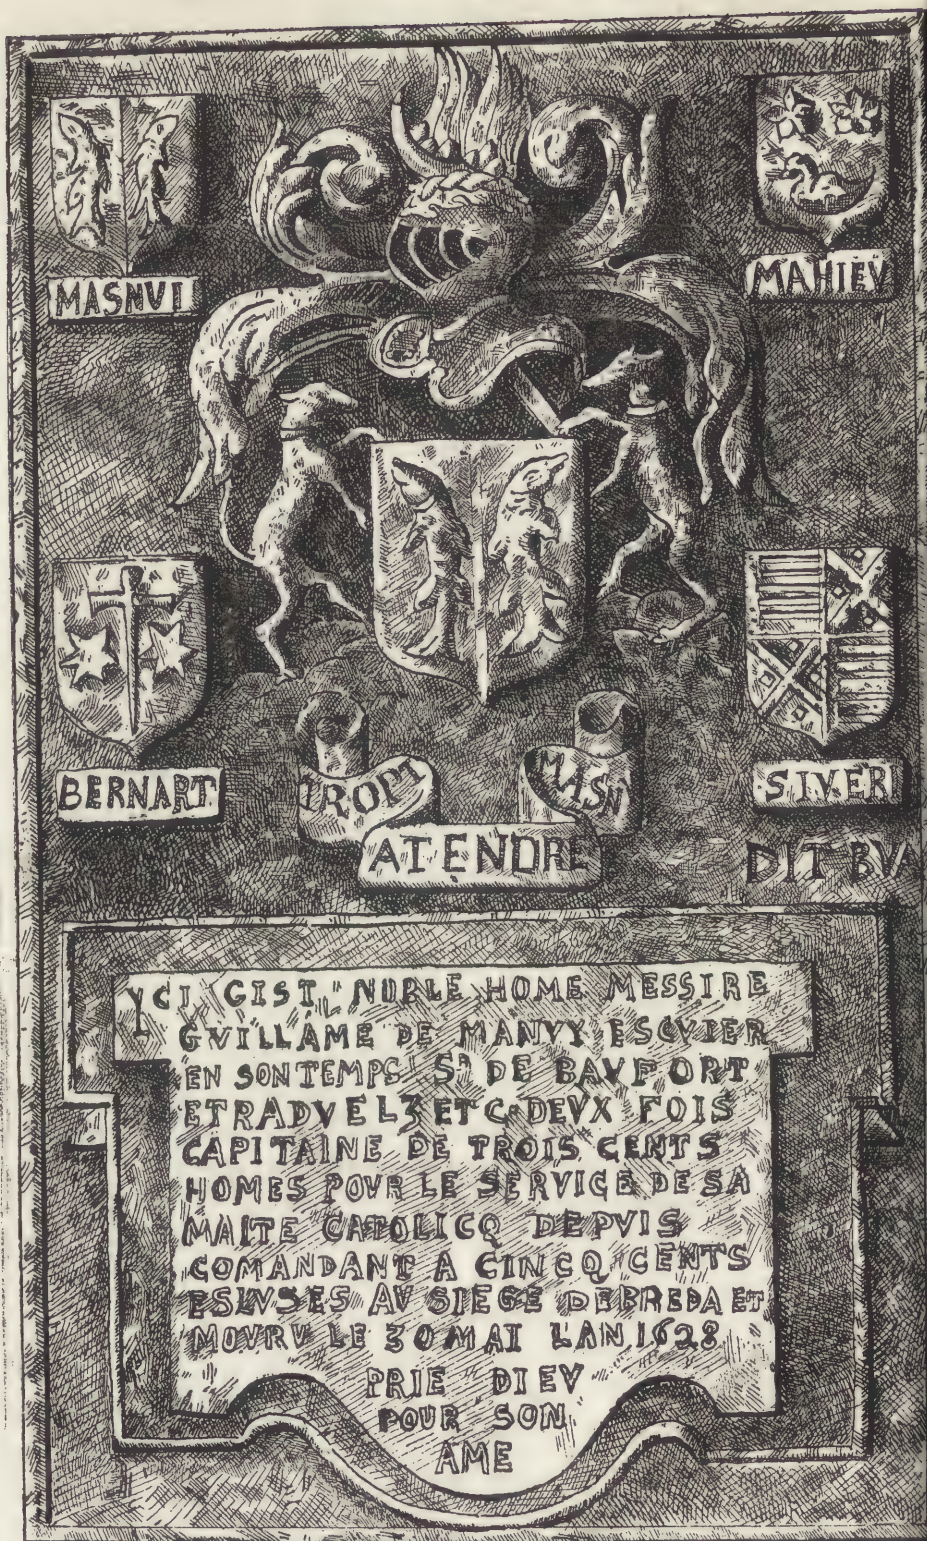 MASNUI
MAHIEV
BERNART
SIVER
DIT BV
TROPT
MASN
ATENDRE
YCI GIST NOBLE HOME MESSIRE
GVILLAME DE MANVY ESCVIER
EN SON TEMPS Sʳ DE BAVFORT
ET RADVEL3 ETC DEVX FOIS
CAPITAINE DE TROIS CENTS
HOMES POVR LE SERVICE DE SA
MAITE CATOLICQ DEPVIS
COMANDANT A CINCQ CENTS
ESLVSES AV SIEGE DE BREDA ET
MOVRV LE 30 MAI LAN 1628
PRIE DIEV
POUR SON
AME